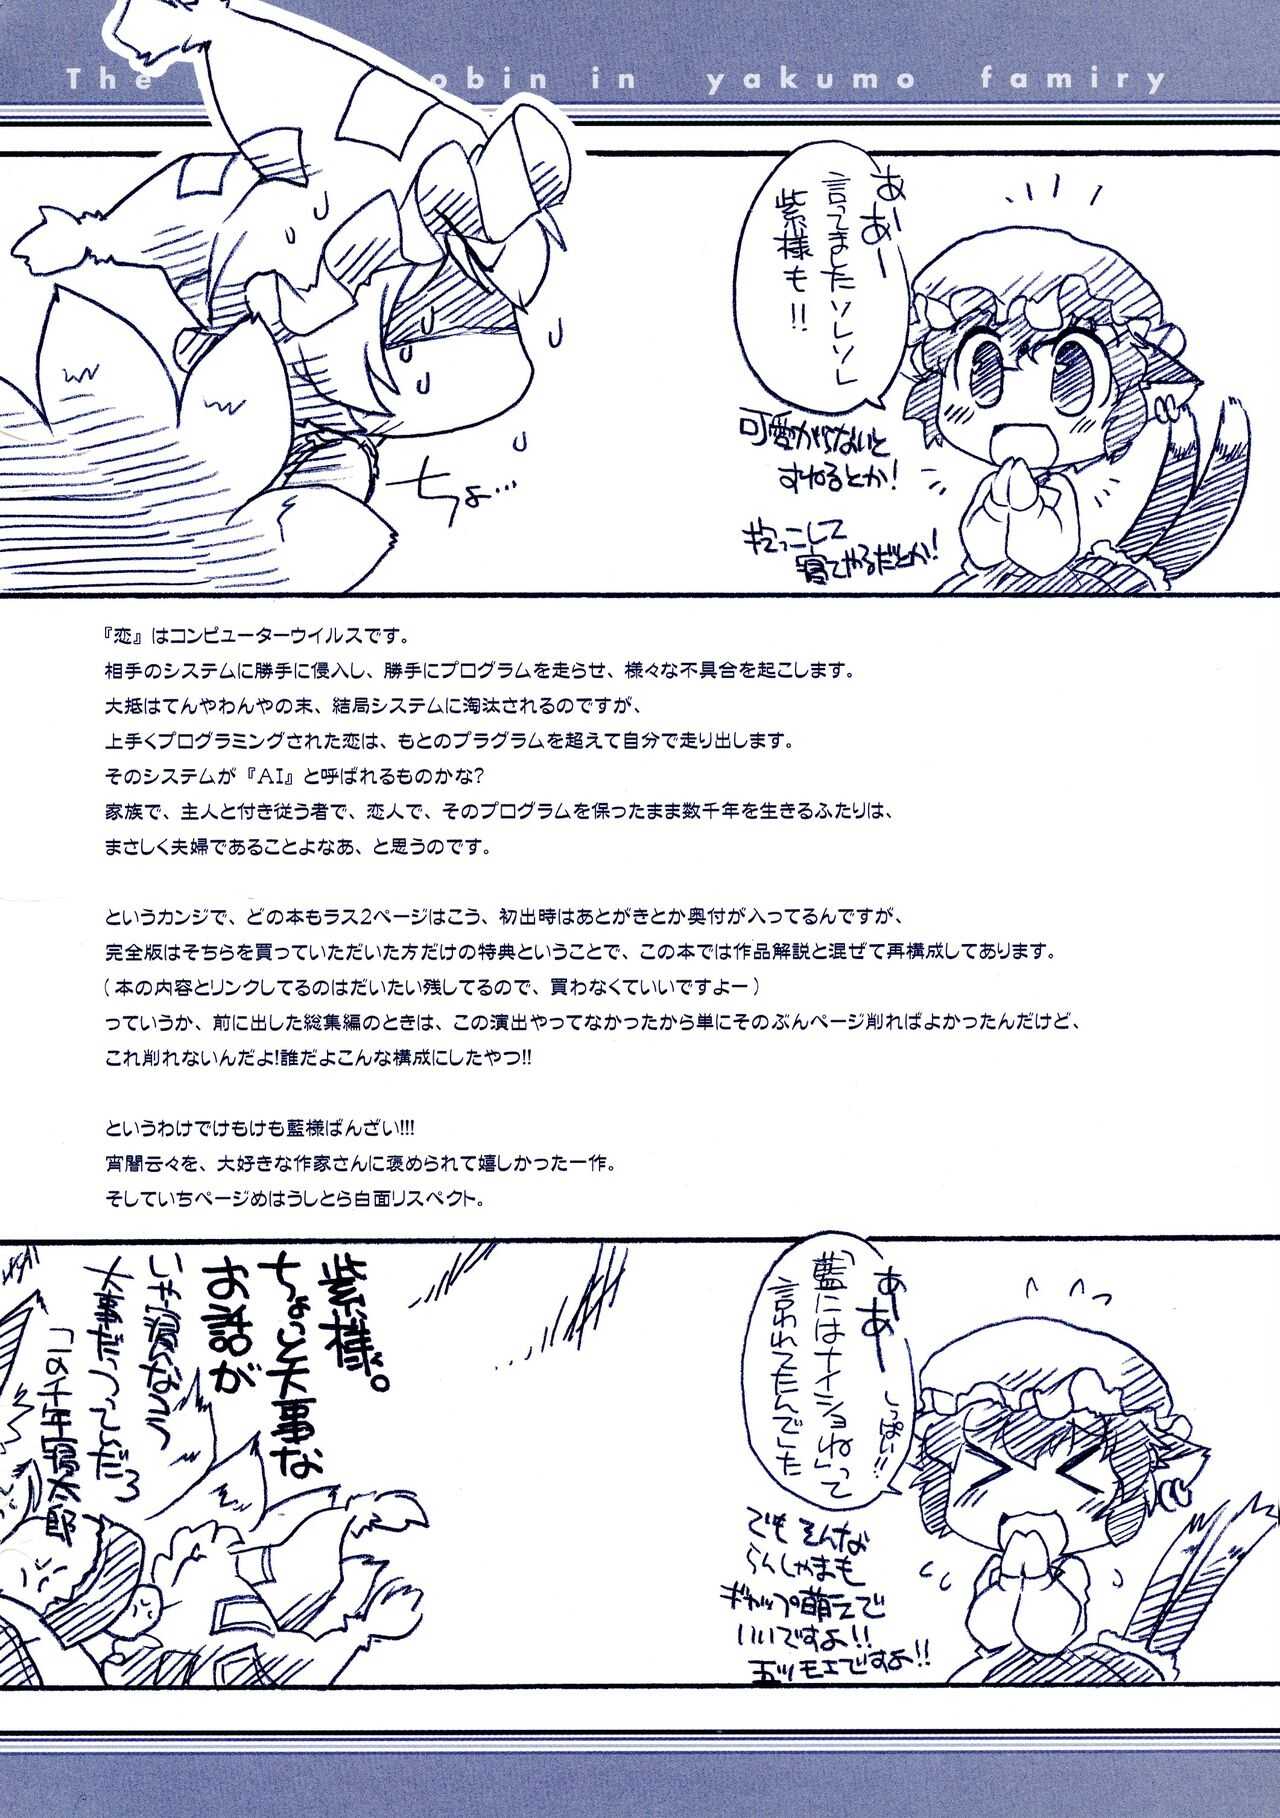 The obin in yakumo famiry
あぁー
言ってましたソレソレ
紫様も!!
可愛がらないと
すねるとか!
だっこして
寝てやるだとか!
ちょ…
『恋』はコンピューターウイルスです。
相手のシステムに勝手に侵入し、勝手にプログラムを走らせ、様々な不具合を起こします。
大抵はてんやわんやの末、結局システムに淘汰されるのですが、
上手くプログラミングされた恋は、もとのプラグラムを超えて自分で走り出します。
そのシステムが『AI』と呼ばれるものかな?
家族で、主人と付き従う者で、恋人で、そのプログラムを保ったまま数千年を生きるふたりは、
まさしく夫婦であることよなあ、と思うのです。
というカンジで、どの本もラス2ページはこう、初出時はあとがきとか奥付が入ってるんですが、
完全版はそちらを買っていただいた方だけの特典ということで、この本では作品解説と混ぜて再構成してあります。
(本の内容とリンクしてるのはだいたい残してるので、買わなくていいですよー)
っていうか、前に出した総集編のときは、この演出やってなかったから単にそのぶんページ削ればよかったんだけど、
これ削れないんだよ!誰だよこんな構成にしたやつ!!
というわけでけもけも藍様ばんざい!!!
宵闇云々を、大好きな作家さんに褒められて嬉しかった一作。
そしていちページめはうしとら白面リスペクト。
あーあぁー
しっぱい!!
「藍にはナイショね」って
言われてたんでした
でもそんな
らんしゃまも
ギャップ萌えで
いいですよ!!
五ツモエですよ!!
紫様。
ちょっと大事な
お話が
いや寝なう
大事だっつってんだろ
「この千年寝太郎